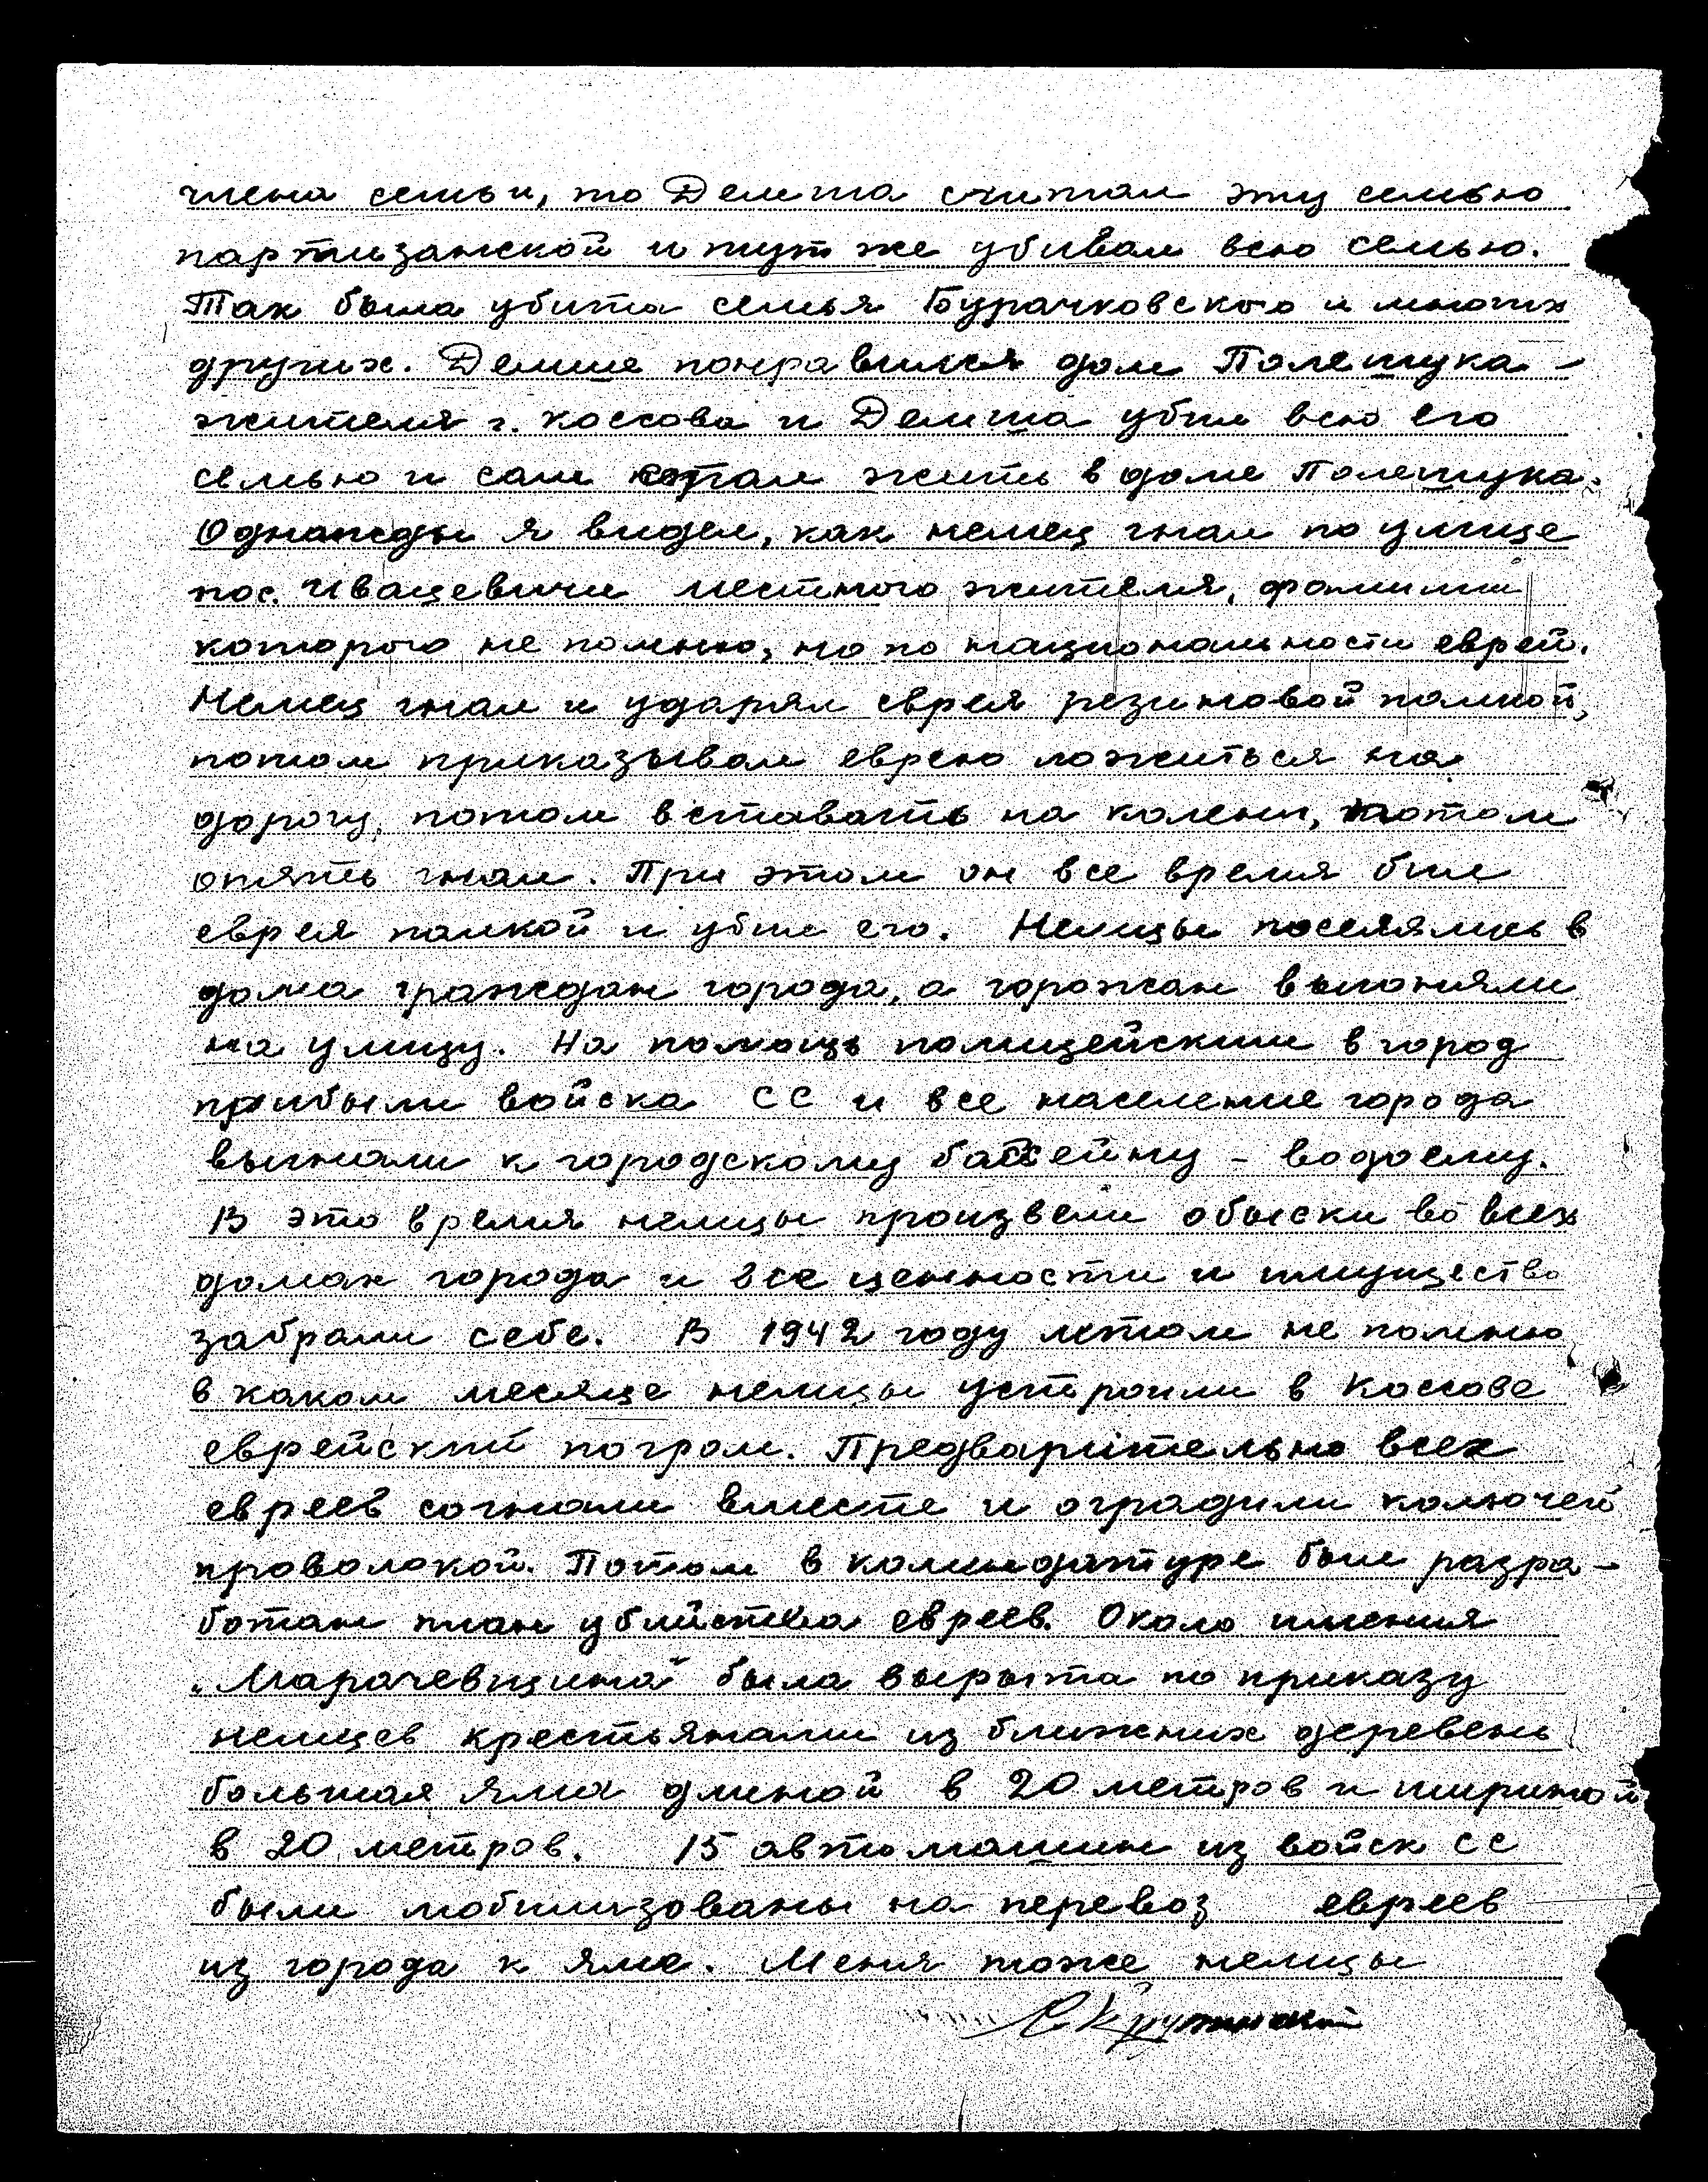 члена семьи, то Демта считал эту семью
партизанской и тут же убивал всю семью.
Так была убита семья Бурачковского и многих
других. Демше понравился дом Полещука –
жителя г. Коссова и Демша убил всю его
семью и сам стал жить в доме Полещука.
Однажды я видел, как немец гнал по улице
пос. Ивацевичи местного жителя, фамилии
которого не помню, но по национальности еврей.
Немец гнал и ударял еврея резиновой палкой,
потом приказывал еврею ложиться на
дорогу, потом вставать на колени, потом
опять гнал. При этом он все время бил
еврея палкой и убил его. Немцы поселялись в
дома граждан города, а горожан выгоняли
на улицу. На помощь полицейским в город
прибыли войска СС и все население города
выгнали к городскому бассейну – водоему.
В это время немцы произвели обыски во всех
домах города и все ценности и имущество
забрали себе. В 1942 году летом не помню
в каком месяце немцы устроили в Коссове
еврейский погром. Предварительно всех
евреев согнали вместе и оградили колючей
проволокой. Потом в комендатуре был разра-
ботан план убийства евреев. Около имения
„Марачевщина" была вырыта по приказу
немцев крестьянами из ближних деревень
большая яма длиной в 20 метров и шириной
в 20 метров. 15 автомашин из войск СС
были мобилизованы на перевоз евреев
из города к яме. Меня тоже немцы